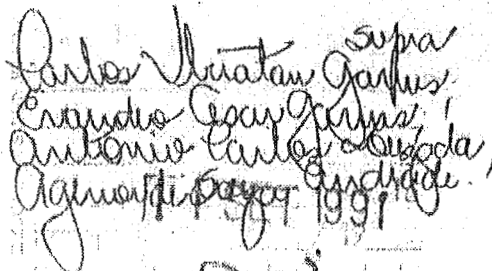 supra
Carlos Ubiratan Garpus
Evandro Cesar Garpus,
Antônio Carlos Louzada
Agenor de Andrade.
1991